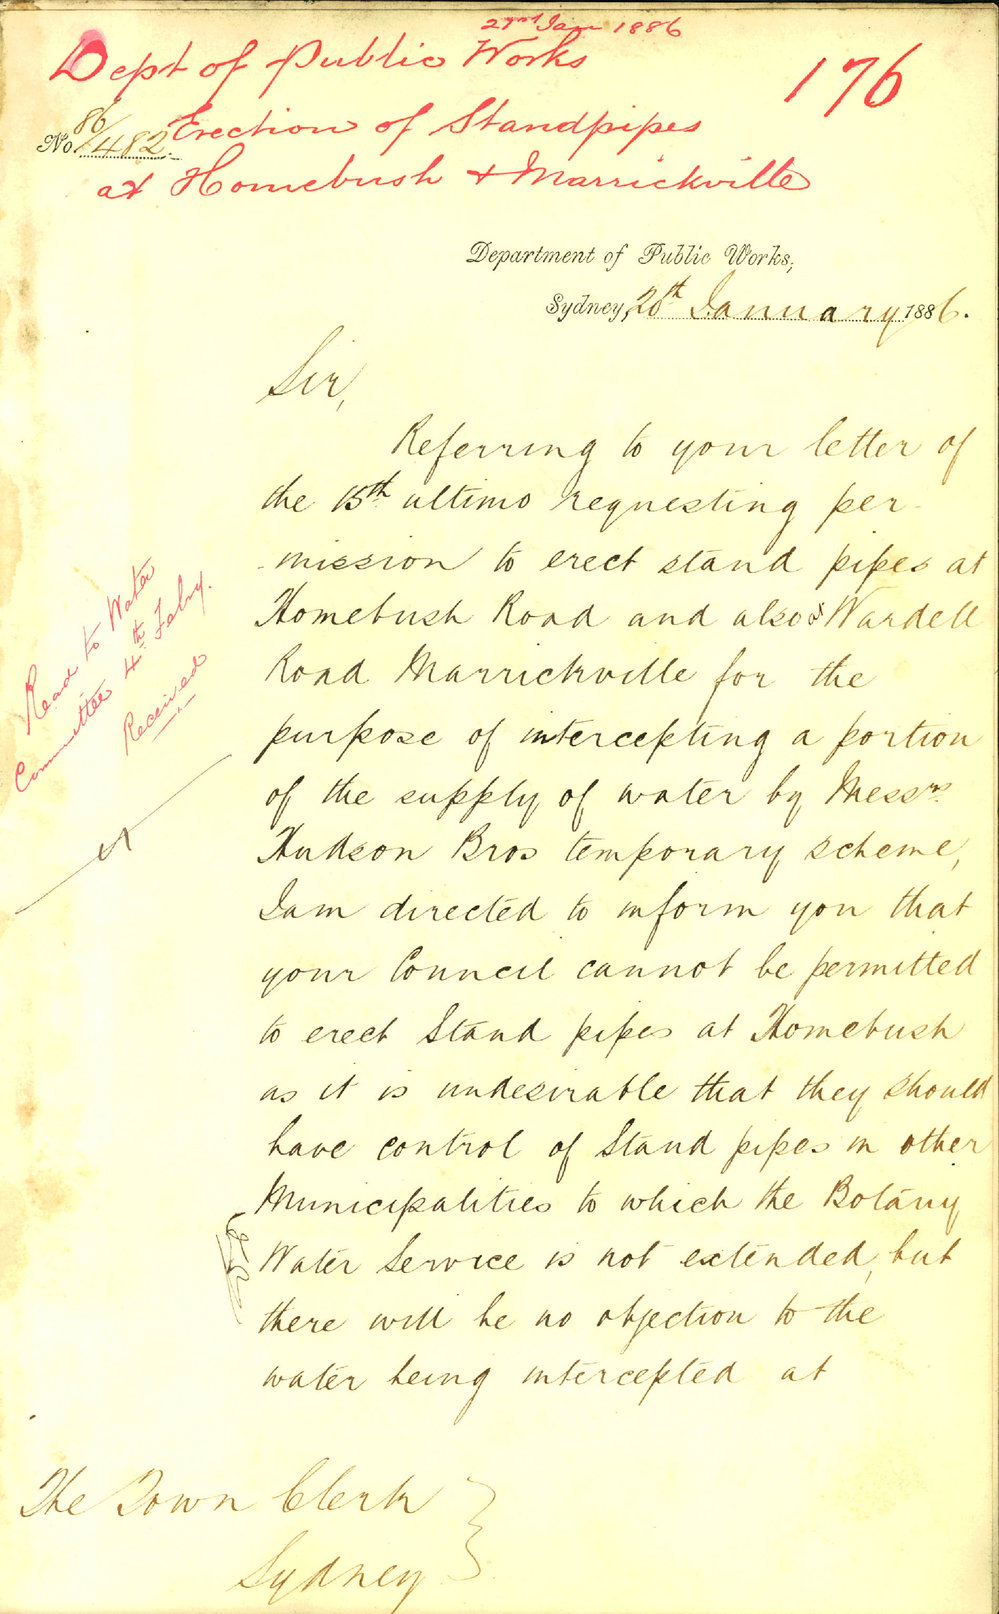 22nd Jan 1886
Dept of Public Works
176
No 86/482.
Erection of Standpipes
at Homebush & Marrickville
Department of Public Works,
Sydney, 20th January 1886.
Sir,
Referring to your letter of
the 15th ultimo requesting per-
-mission to erect stand pipes at
Homebush Road and also Wardell
Road Marrickville for the
purpose of intercepting a portion
of the supply of water by Messrs.
Hudson Bros temporary scheme,
I am directed to inform you that
your Council cannot be permitted
to erect Stand pipes at Homebush
as it is undesirable that they should
have control of Stand pipes in other
Municipalities to which the Botany
Water Service is not extended, but
there will be no objection to the
water being intercepted at
Read to Water
Committee 4th Febry.
Received
The Town Clerk
Sydney